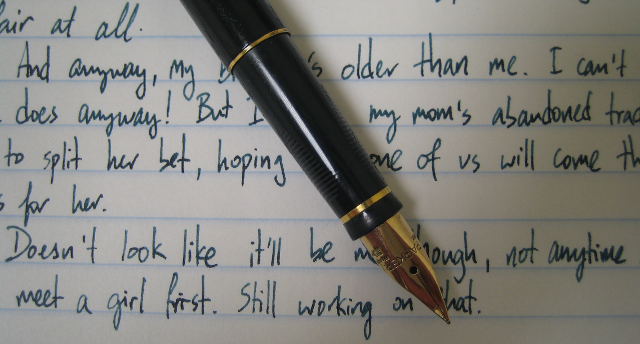 fair at all.
And anyway, my older than me. I can't
does anyway! But I my mom's abandoned
to split her bet, hoping one of us will come
for her.
Doesn't look like it'll be though, not anytime
meet a girl first. Still working on that.